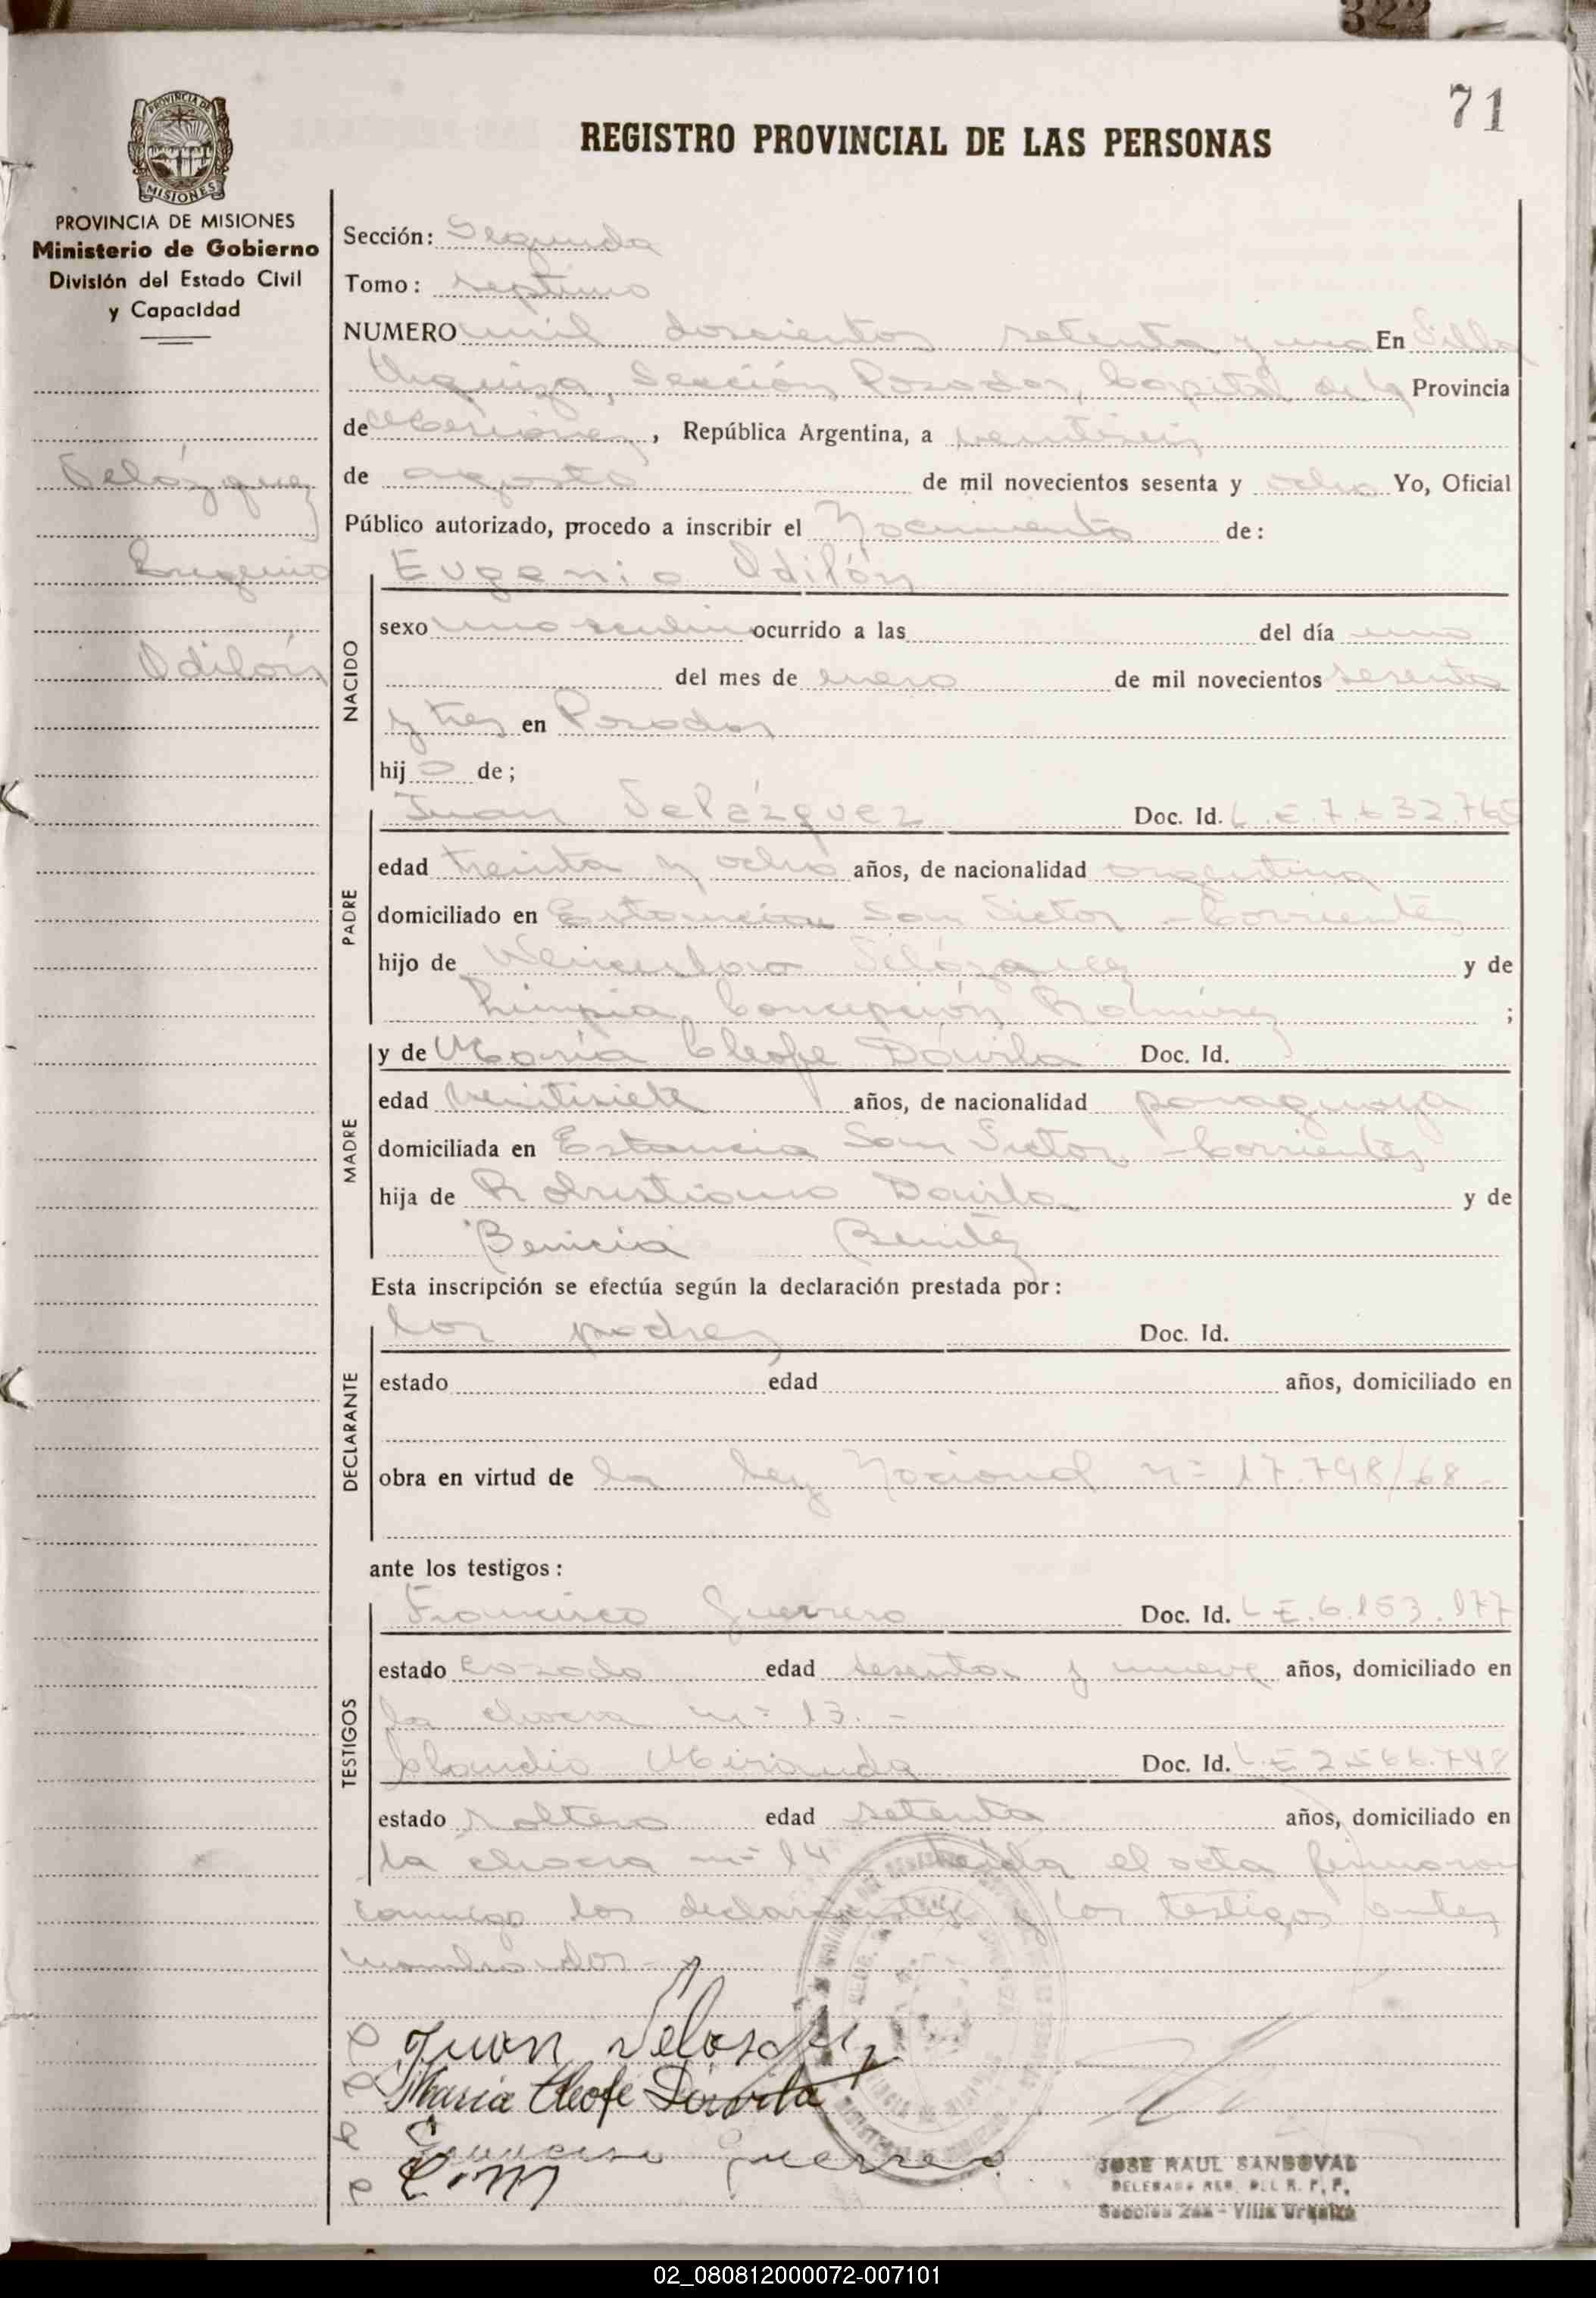 322
71
PROVINCIA DE
MISIONES
REGISTRO PROVINCIAL DE LAS PERSONAS
PROVINCIA DE MISIONES
Ministerio de Gobierno
División del Estado Civil
y Capacidad
Velázquez
Eugenio
Odilón
Sección: Segunda
Tomo: septimo
NUMERO mil doscientos setenta y uno En Villa
Urquiza, Sección Posadas, Capital de la Provincia
de Misiones, República Argentina, a veintiseis
de agosto de mil novecientos sesenta y ocho Yo, Oficial
Público autorizado, procedo a inscribir el Nacimiento de:
NACIDO
Eugenio Odilón
sexo masculino ocurrido a las del día uno
del mes de enero de mil novecientos sesenta
y tres en Posadas
hijo de;
PADRE
Juan Velázquez Doc. Id. L.E. 7.632.765
edad treinta y ocho años, de nacionalidad argentina
domiciliado en Estancia San Victor - Corrientes
hijo de Wenceslao Velázquez y de
Limpia Concepción Ramírez ;
MADRE
y de María Cleofe Dávila Doc. Id.
edad veintisiete años, de nacionalidad paraguaya
domiciliada en Estancia San Victor - Corrientes
hija de Robustiano Davila y de
Benicia Benitez
Esta inscripción se efectúa según la declaración prestada por:
DECLARANTE
los padres Doc. Id.
estado edad años, domiciliado en
obra en virtud de la ley Nacional nº 17.798/68.-
ante los testigos:
TESTIGOS
Francisco Guerrero Doc. Id. L.E. 6.153.177
estado casado edad sesenta y nueve años, domiciliado en
la chacra nº 13.-
Claudio Miranda Doc. Id. L.E 2566.798
estado soltero edad setenta años, domiciliado en
la chacra nº 14 leida el acta firmaron
conmigo los declarantes y los testigos antes
nombrados.-
Juan Velasquez
Maria Cleofé Davila
Francisco Guerrero
C.M
JOSE RAUL SANDOVAL
DELEGADO REG. DEL R. P. P.
Seccion 2da - Villa Urquiza
02_080812000072-007101